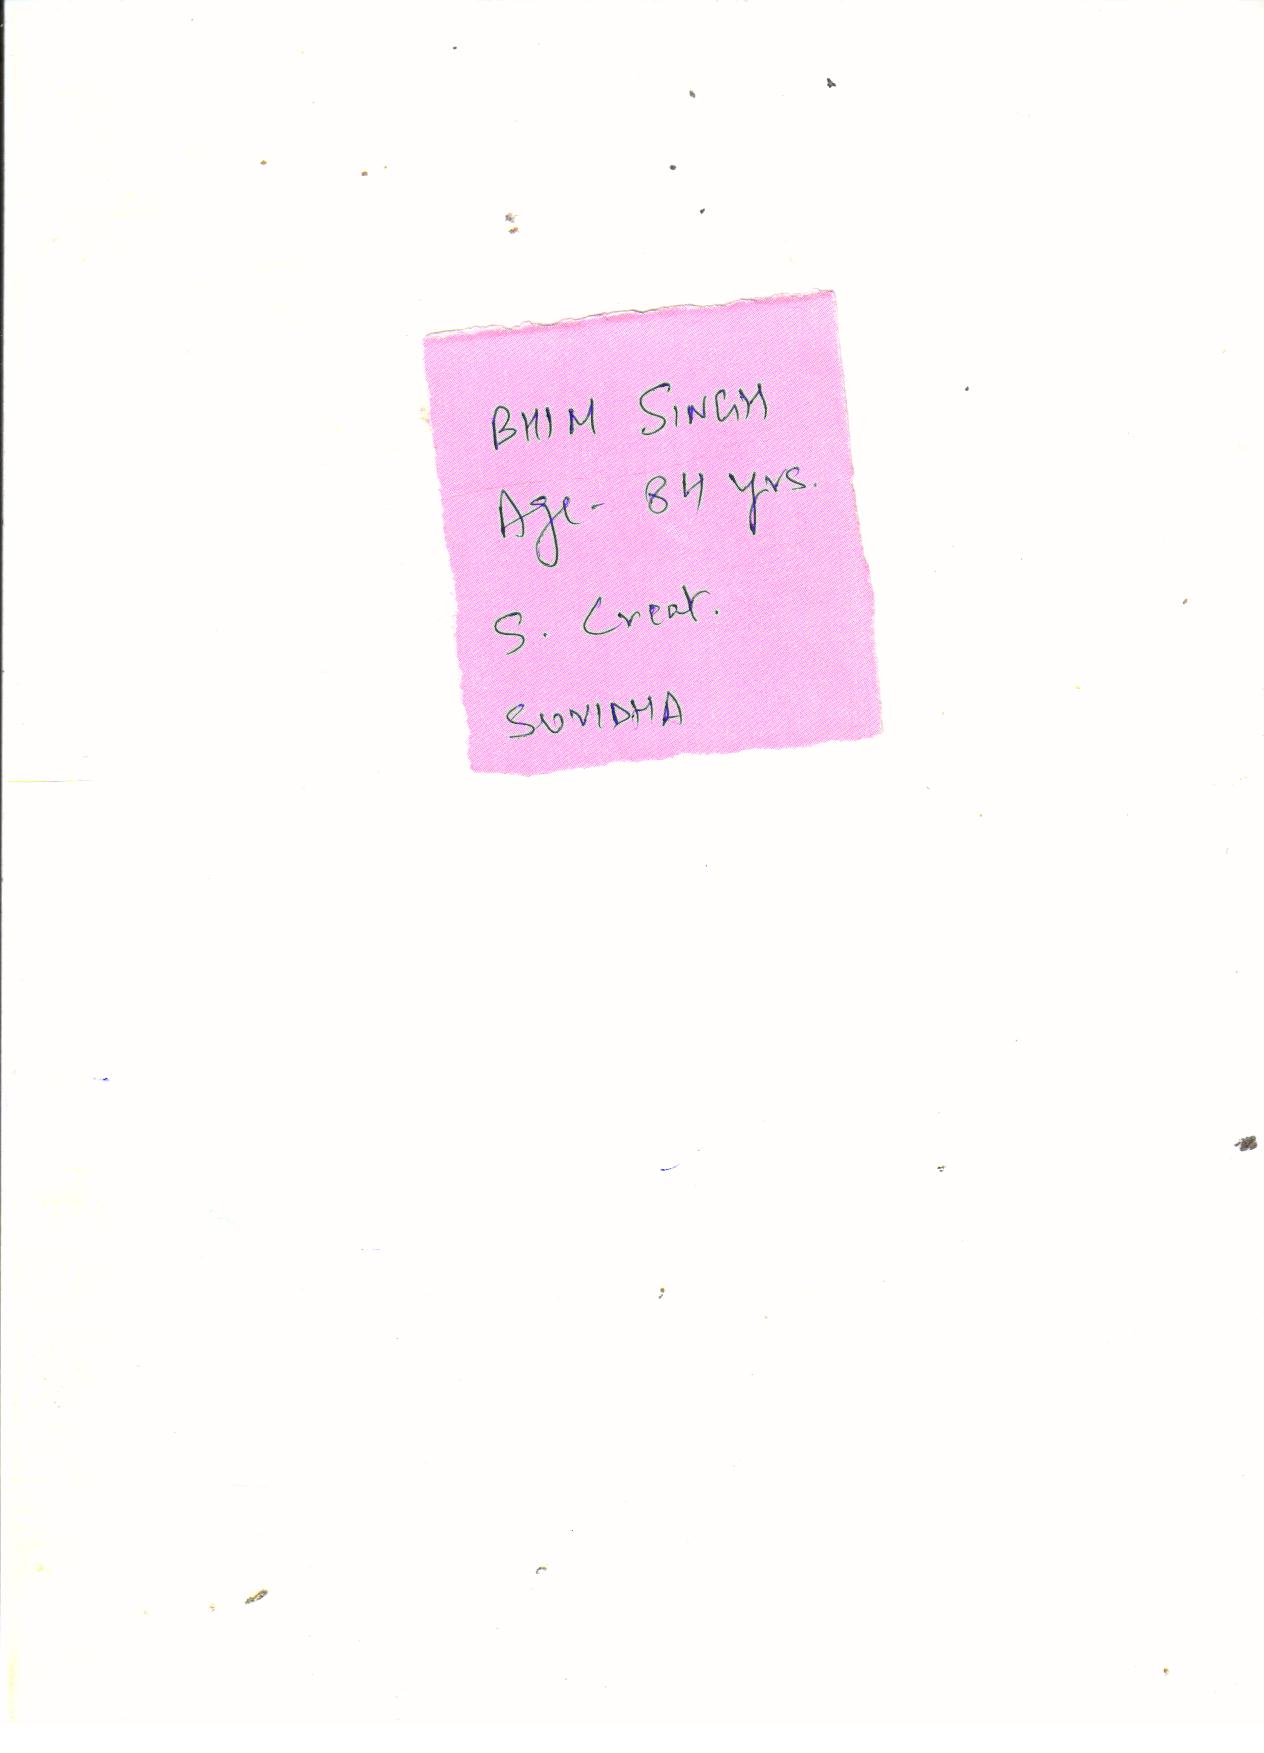 BHIM SINGH
Age- 84 yrs.
S. Creat.
SUVIDHA